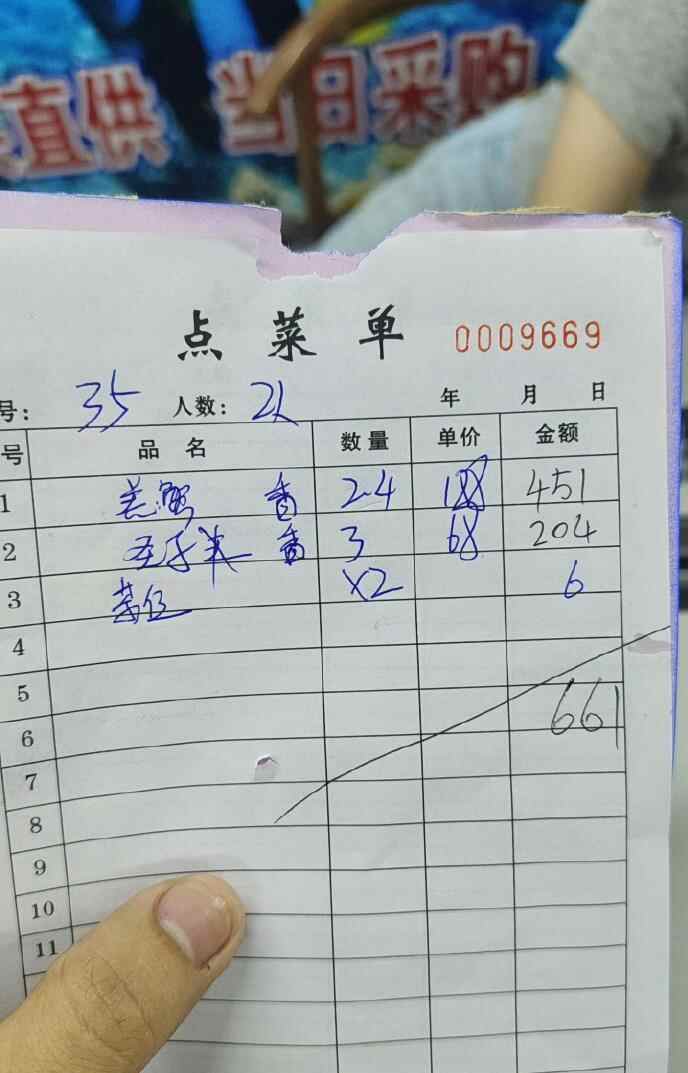 直供 当日采购
点菜单 0009669
号: 35 人数: 2人 年 月 日
号 品名 数量 单价 金额
1 羔蟹 2.4 188 451
2 3 68 204
3 茶位 x2 6
4
5
6 661
7
8
9
10
11